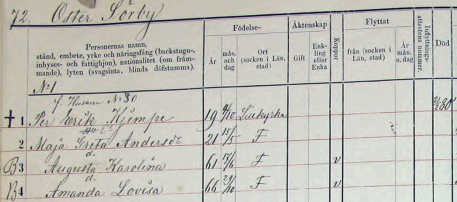 72. Öster Sörby
Personernas namn,
stånd, embete, yrke och näringsfång (backstugu-,
inhyses- och fattighjon), nationalitet (om främ-
mande), lyten (svagsinta, blinda döfstumma).
Födelse-
År
mån. och dag
Ort (socken i Län, stad)
Äktenskap
Gift
Enk-ling eller Enka
Koppor
Flyttat
från (socken i Län, stad)
År mån. o. dag
Inflyttnings-attestens nummer.
Död
No 1
f. Husar No 30
† 1 Per Erik Kjempe 19 4/10 Lillkyrka 80
2 Maja Greta Andersdr 21 F
B 3 d. Augusta Karolina 61 F v
B 4 d. Amanda Lovisa 66 F v